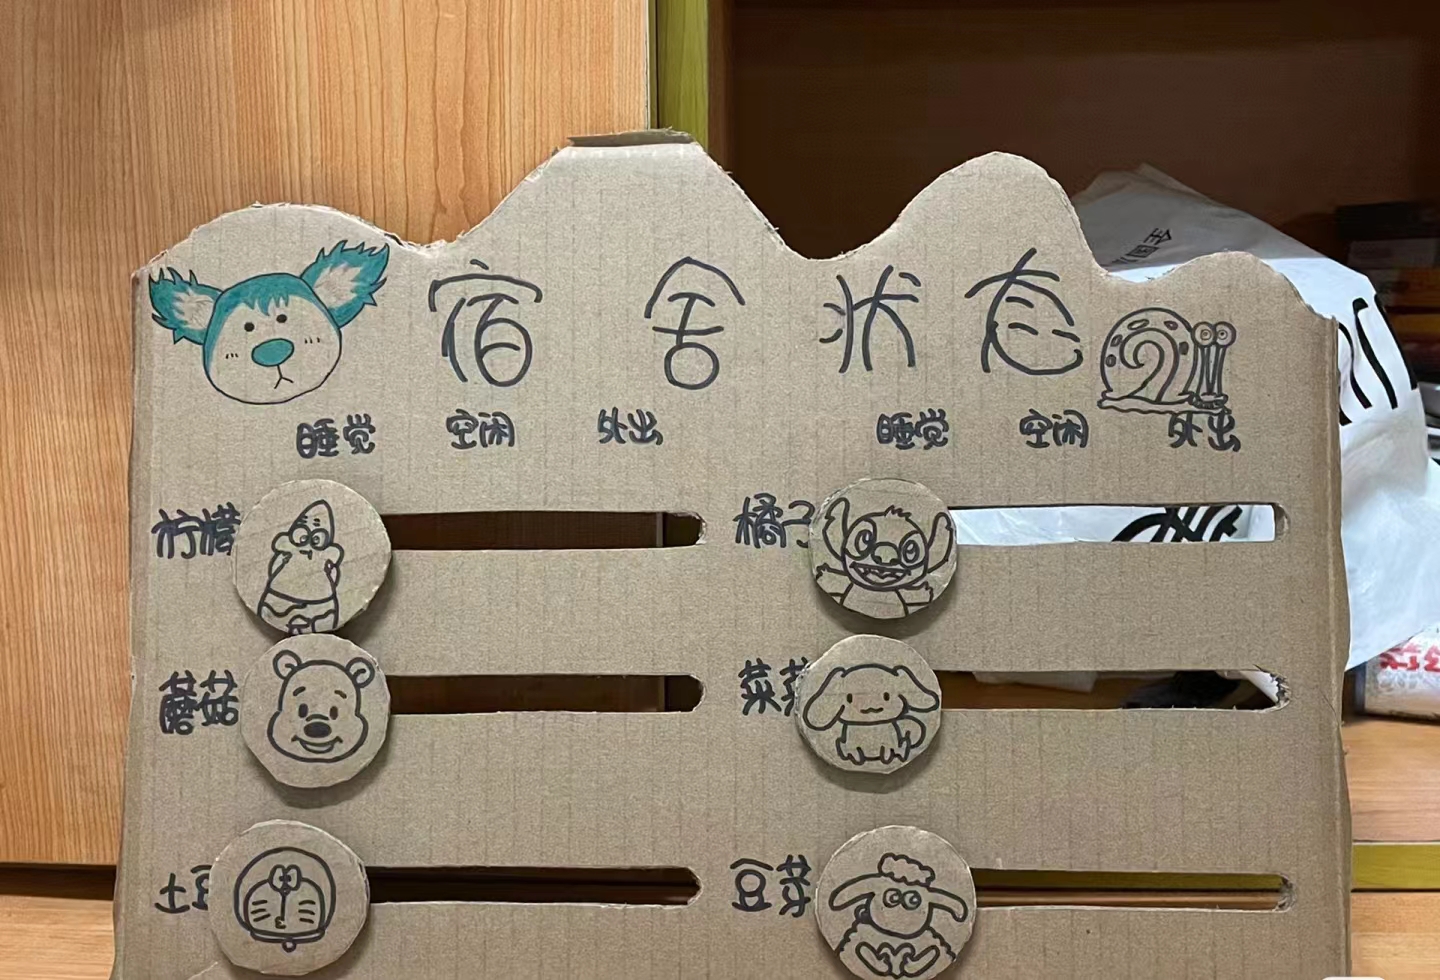 宿舍状态
睡觉 空闲 外出 睡觉 空闲 外出
柠檬 橘子
蘑菇 菜
土豆 豆芽